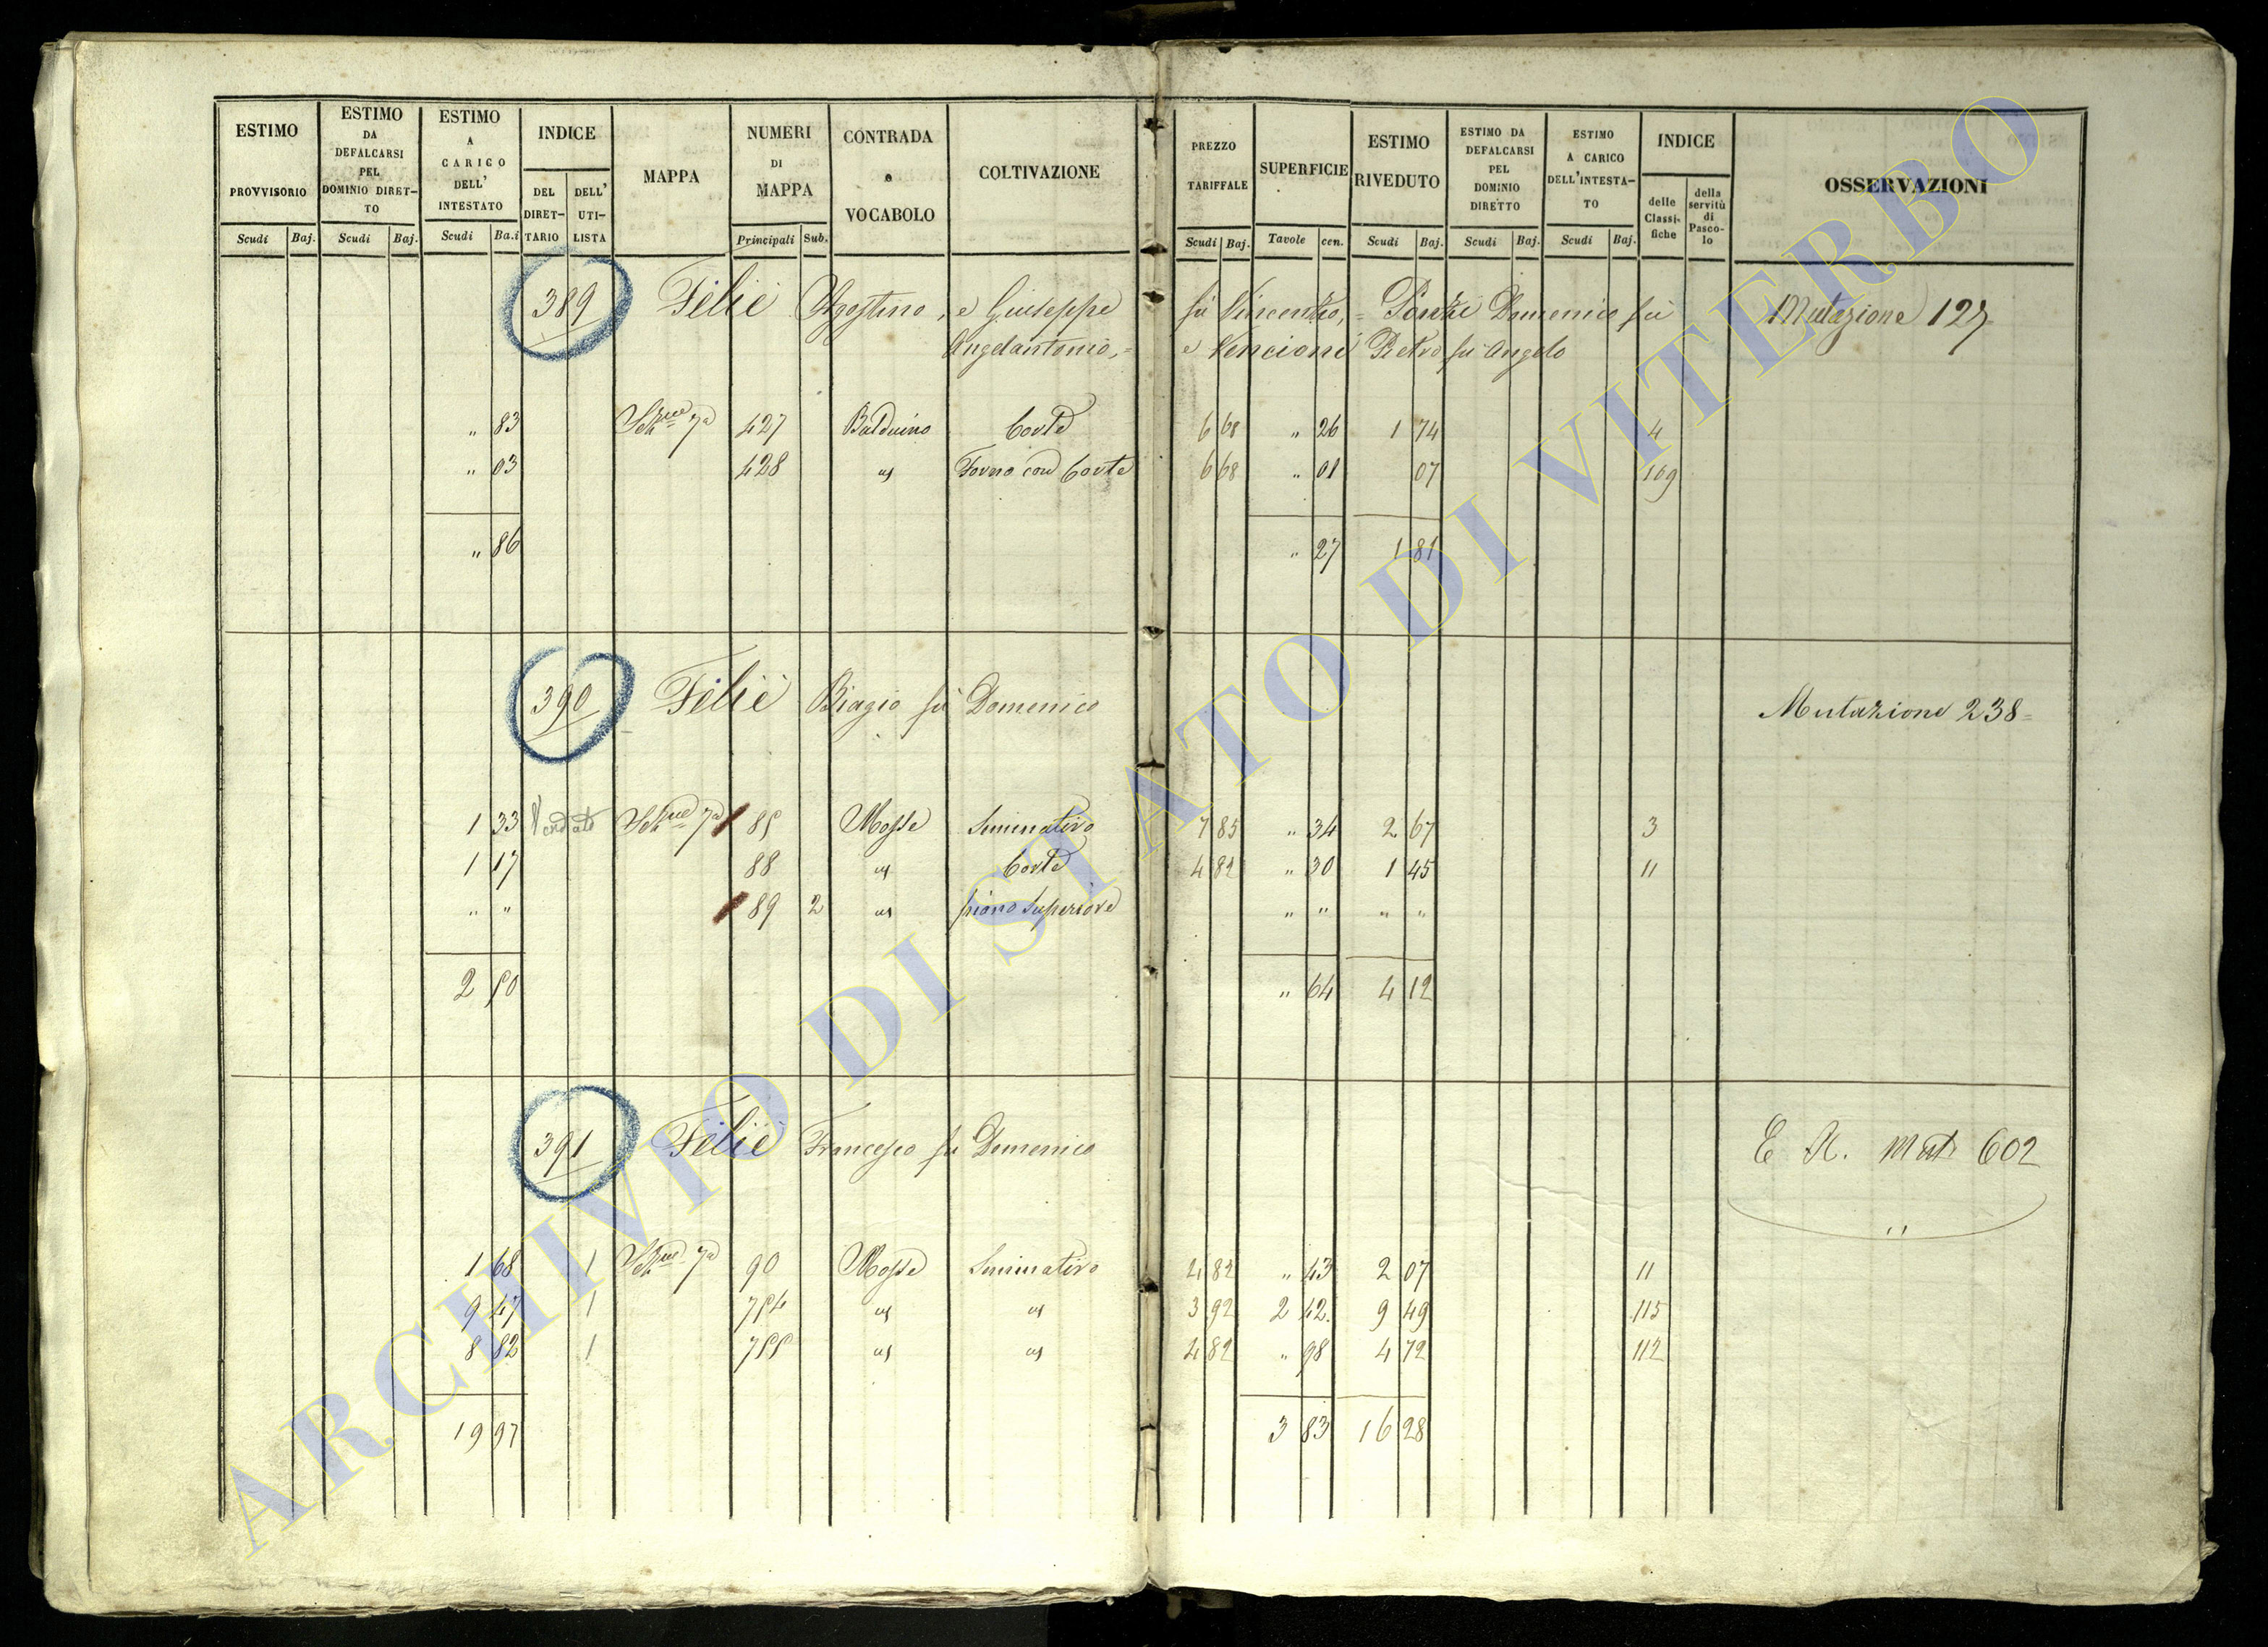 ESTIMO PROVVISORIO Scudi Baj. ESTIMO DA DEFALCARSI PEL DOMINIO DIRET-TO Scudi Baj. ESTIMO A CARICO DELL' INTESTATO Scudi Ba.i INDICE DEL DIRET-TARIO DELL' UTI-LISTA MAPPA NUMERI DI MAPPA Principali Sub. CONTRADA o VOCABOLO COLTIVAZIONE PREZZO TARIFFALE Scudi Baj. SUPERFICIE Tavole cen. ESTIMO RIVEDUTO Scudi Baj. ESTIMO DA DEFALCARSI PEL DOMINIO DIRETTO Scudi Baj. ESTIMO A CARICO DELL'INTESTA-TO Scudi Baj. INDICE delle Classi-fiche della servitù di Pasco-lo OSSERVAZIONI
389 Felie Agostino, e Giuseppe fu Vincenzo, = Ponzi Domenico fu Mutazione 127
Angelantonio, = e Vencioni Pietro fu Angelo
" 83 7a 427 Balduino Corte 6 68 " 26 1 74 4
" 03 428 as Forno con Corte 6 68 " 01 07 109
" 86 " 27 1 81
390 Felie Biagio fu Domenico Mutazione 238=
1 33 7a 85 Mosse Seminativo 7 85 " 34 2 67 3
1 17 88 as Corte 4 82 " 30 1 45 11
" " 89 2 as piano Superiore " " " "
2 50 " 64 4 12
391 Felie Francesco fu Domenico E R. Mut 602
1 68 1 7a 90 Mosse Seminativo 4 82 " 43 2 07 11
9 47 1 754 as as 3 92 2 42 9 49 115
8 82 1 755 as as 4 82 " 98 4 72 112
19 97 3 83 16 28
ARCHIVIO DI STATO DI VITERBO